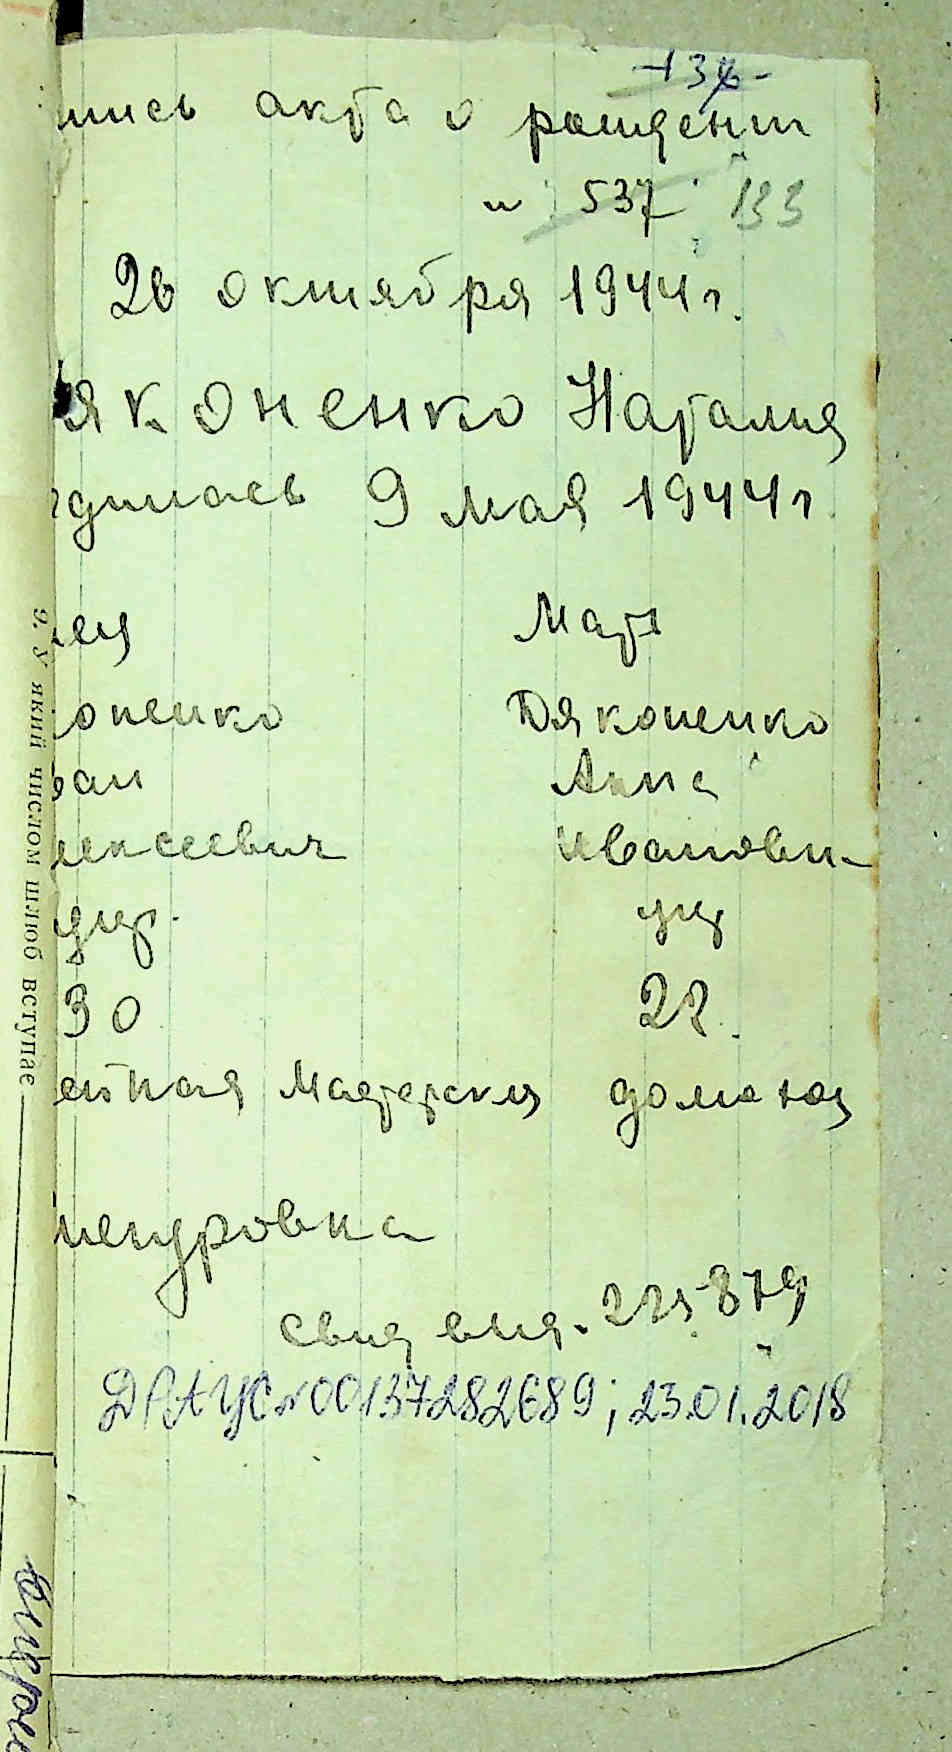 -136-
пись акта о рождении
н 537 133
26 октября 1944 г.
яконенко Наталия
дилась 9 мая 1944 г
ец Мать
оненко Дяконенко
ван Анна
лексеевич Ивановн-
укр. укр
30 28.
Маstерския домохоз
свид выд. 225879
ДРАЦС № 00137282689; 23.01.2018
9. У який числом шлюб вступає